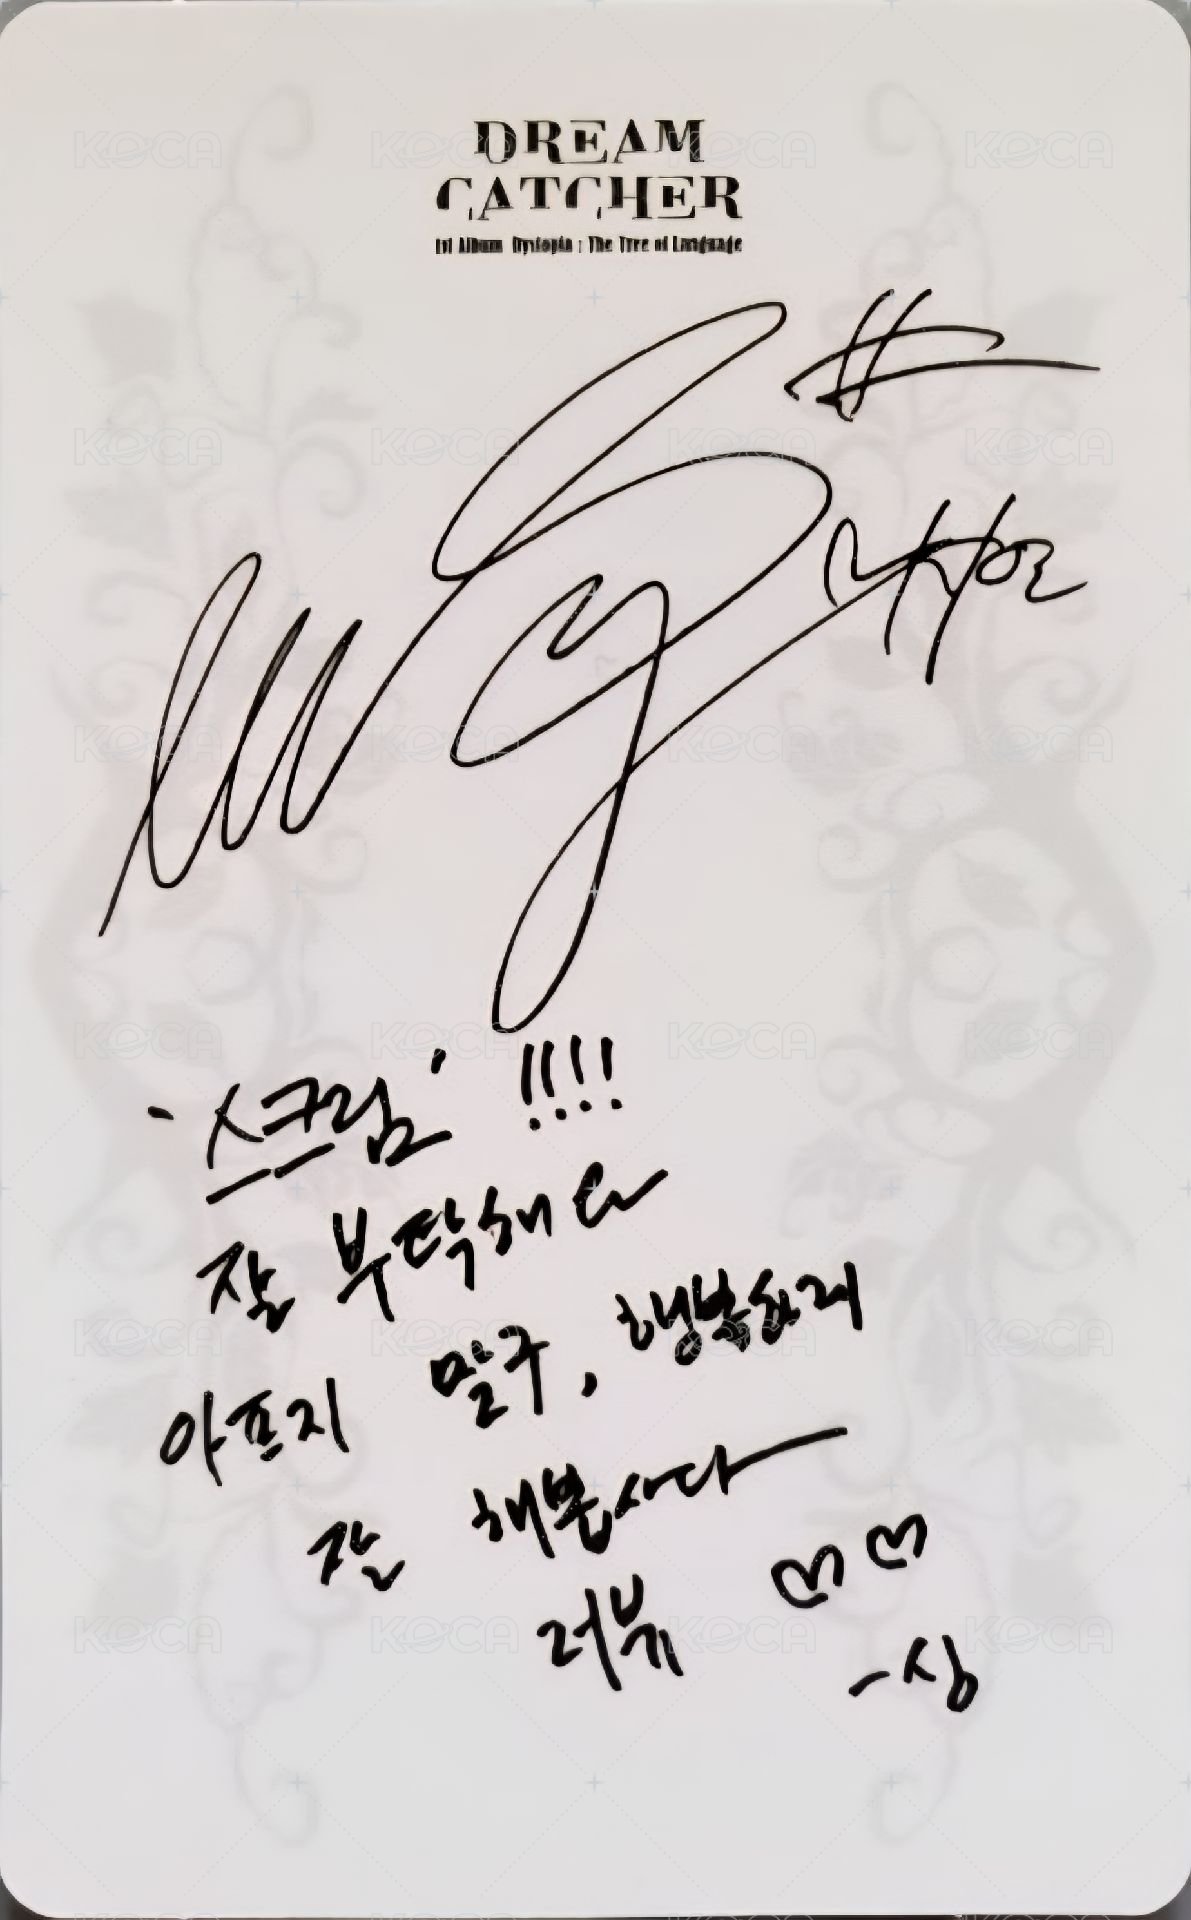 DREAM
CATCHER
1st Album Dystopia : The Tree of Language
#
나시연
'스크림' !!!!
잘 부탁해요
아프지 말구, 행복하게
잘 해봅시다
러뷰 ♡♡
-싱
KOCA